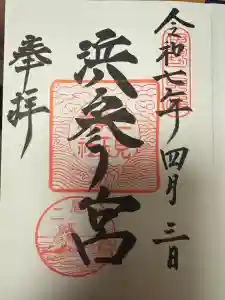 令和七年四月三日
浜参宮
奉拝